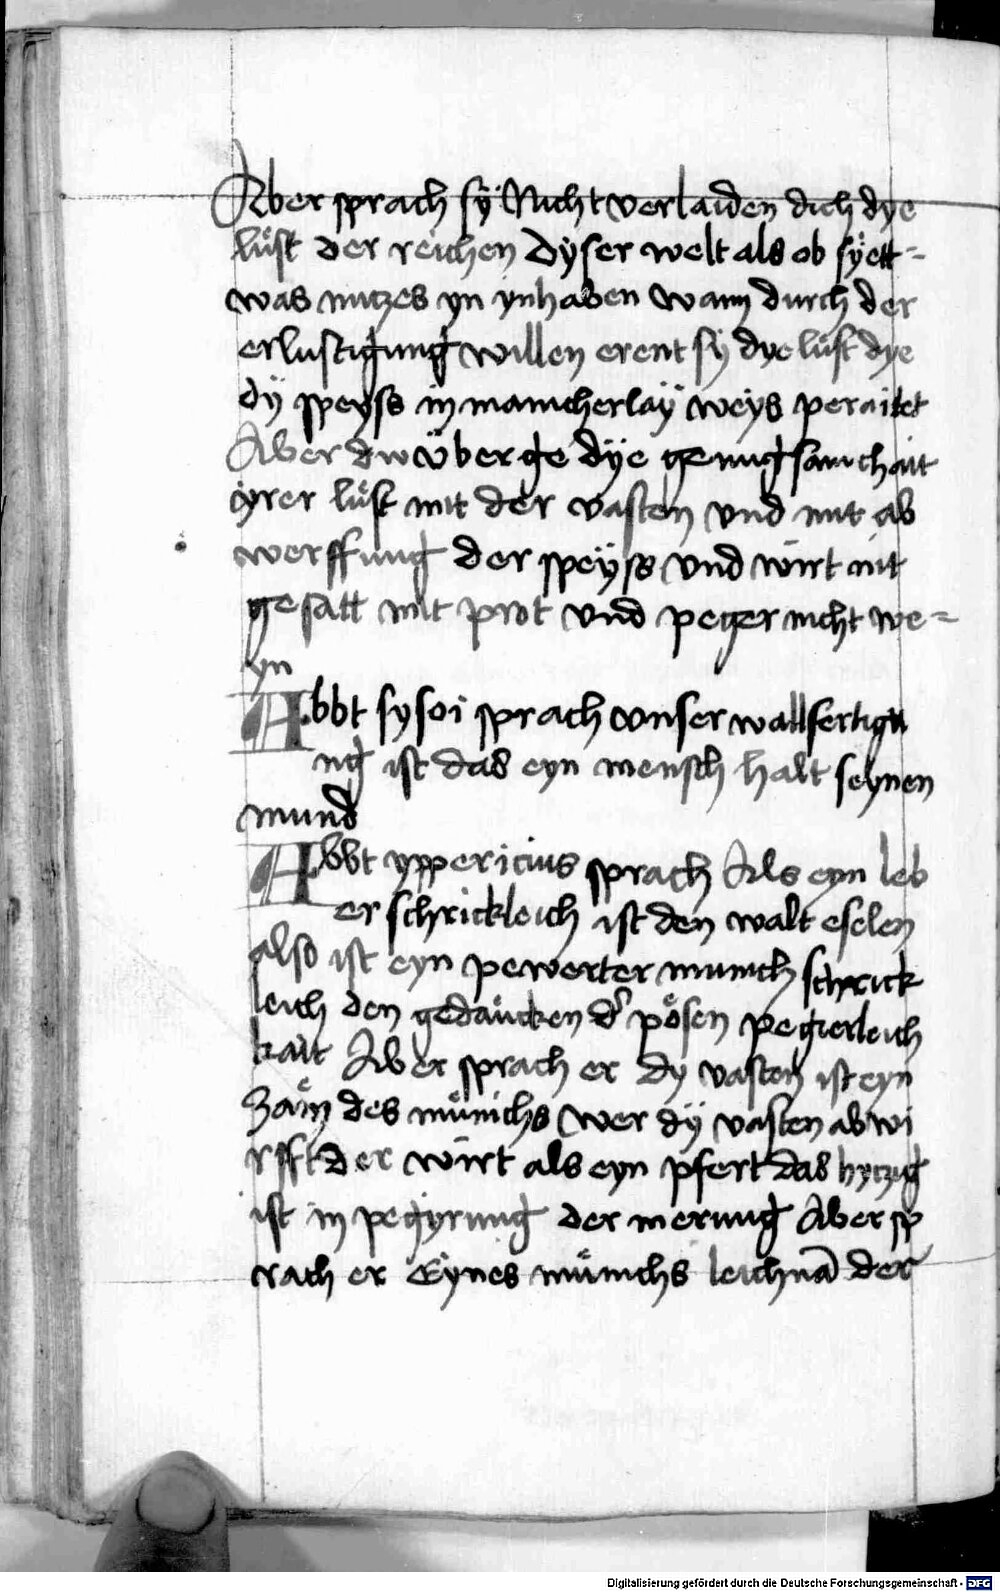 Aber sprach sÿ Nicht verlaiden dich dye
lüst der reichen dyser welt als ob sÿ ett-
was nutzes yn ynhaben wann durch der
erlustigung willen erent sÿ dye lüst dye
dÿ speyss in mancherlaÿ weÿs peraitet
Aber dw überge dÿe genugsamchait
ÿrer lüst mit der vasten vnd mit ab
werffung der speÿss vnd wirt nit
gesatt mit prot vnd peger nicht we-
yn
Abbt sysoi sprach vnser wallfertigu
ng ist das eyn mensch halt seynen
mund
Abbt yppericius sprach Als eyn leb
er schrickleich ist den walt eselen
also ist eyn pewerter munich schrick
leich den gedäncken der pösen pegierleich
kait Aber sprach er dy vasten ist eyn
zäm des münichs wer dÿ vasten ab wi
rfft der wirt als eyn pfert das hytzig
ist in pegyrung der merung Aber sp
rach er Eynes münichs leichnā der
Digitalisierung gefördert durch die Deutsche Forschungsgemeinschaft - DFG